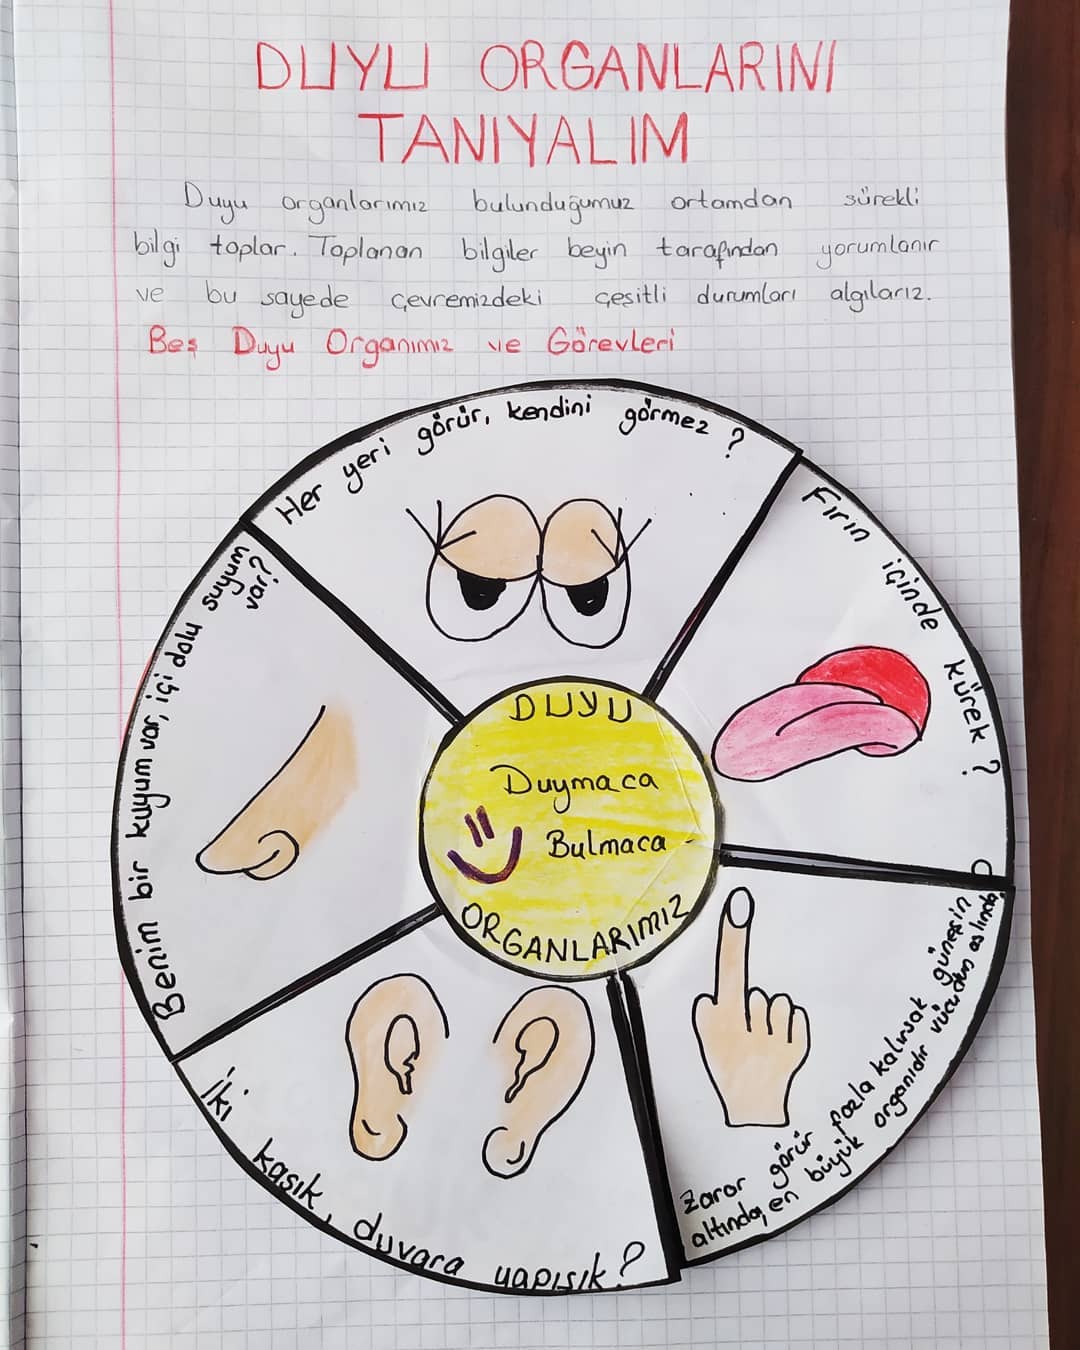 DUYU ORGANLARINI
TANIYALIM
Duyu organlarımız bulunduğumuz ortamdan sürekli
bilgi toplar. Toplanan bilgiler beyin tarafından yorumlanır
ve bu sayede çevremizdeki çeşitli durumları algılarız.
Beş Duyu Organımız ve Görevleri
Her yeri görür, kendini görmez ?
Fırın içinde kürek ?
Zarar görür fazla kalırsak güneşin
altında, en büyük organıdır vücudun aslında?
İki kaşık, duvara yapışık?
Benim bir kuyum var, içi dolu suyum
var?
DUYU
Duymaca
Bulmaca
ORGANLARIMIZ